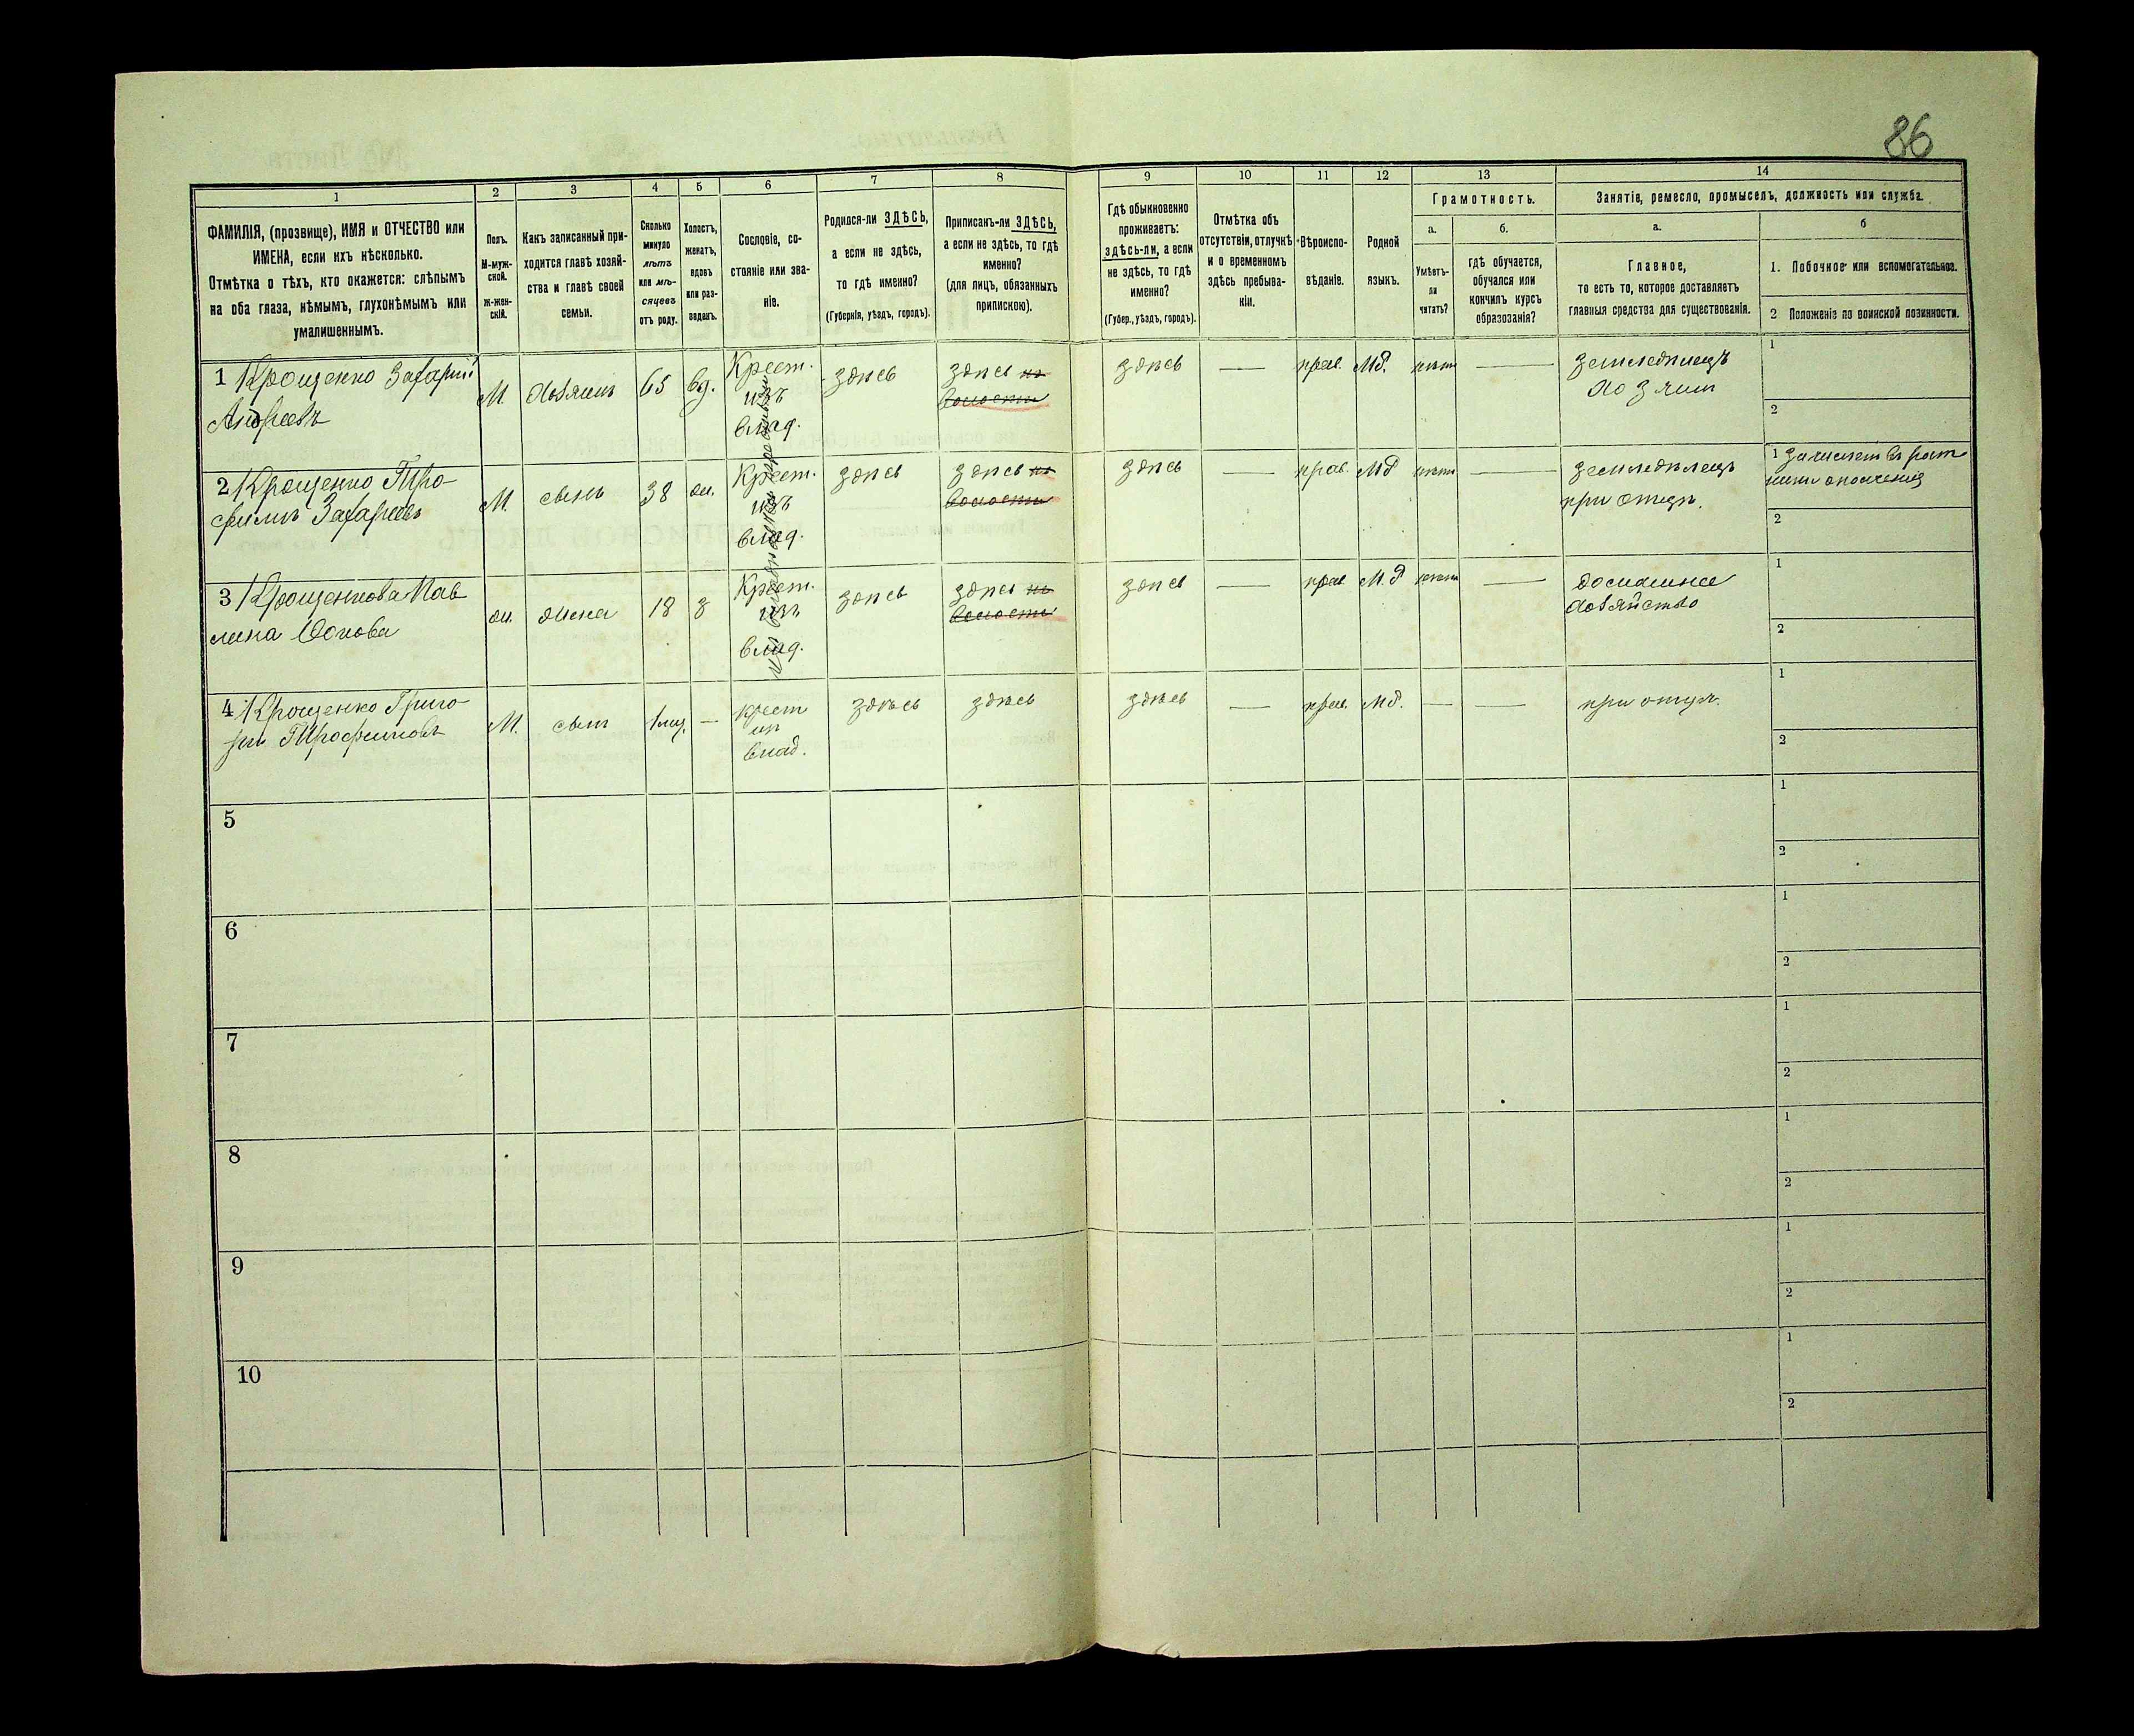 86
1
2
3
4
5
6
7
8
9
10
11
12
13
14
ФАМИЛІЯ, (прозвище), ИМЯ и ОТЧЕСТВО или
ИМЕНА, если ихъ нѣсколько.
Отмѣтка о тѣхъ, кто окажется: слѣпымъ
на оба глаза, нѣмымъ, глухонѣмымъ или
умалишеннымъ.
Полъ.
М-муж-
ской.
ж-жен-
скій.
Какъ записанный при-
ходится главѣ хозяй-
ства и главѣ своей
семьи.
Сколько
минуло
лѣтъ
или мѣ-
сяцевъ
отъ роду.
Холостъ,
женатъ,
вдовъ
или раз-
веденъ.
Сословіе, со-
стояніе или зва-
ніе.
Родился-ли ЗДѢСЬ,
а если не здѣсь,
то гдѣ именно?
(Губернія, уѣздъ, городъ).
Приписанъ-ли ЗДѢСЬ,
а если не здѣсь, то гдѣ
именно?
(для лицъ, обязанныхъ
припискою).
Гдѣ обыкновенно
проживаетъ:
здѣсь-ли, а если
не здѣсь, то гдѣ
именно?
(Губер., уѣздъ, городъ).
Отмѣтка объ
отсутствіи, отлучкѣ
и о временномъ
здѣсь пребыва-
ніи.
Вѣроиспо-
вѣданіе.
Родной
языкъ.
Грамотность.
а.
Умѣетъ-
ли
читать?
б.
гдѣ обучается,
обучался или
кончилъ курсъ
образованія?
Занятіе, ремесло, промыселъ, должность или служба.
а.
Главное,
то есть то, которое доставляетъ
главныя средства для существованія.
б
1. Побочное или вспомогательное.
2 Положеніе по воинской повинности.
1 Крощенко Захарій
Андреевъ
М. хозяинъ 65 вд. Крест. изъ влад. здѣсь здѣсь въ волости здѣсь — прав. Мд. нѣтъ — земледѣлецъ хозяин 1 2
2 Крощенко Тро-
фимъ Захаріевъ
М. сынъ 38 ж. Крест. изъ влад. здѣсь здѣсь въ волости здѣсь — прав. Мд нѣтъ — земледѣлецъ при отцѣ. 1 зачислен въ рат-
ники ополченія
2
3 Крощенкова Пав-
лина
ж. жена 18 з Крест. изъ влад. здѣсь здѣсь въ волости здѣсь — прав М.д нѣтъ — домашнее хозяйство 1 2
4 Крощенко Григо-
рій Трофимовъ
М. сын 1 мц. — крест из влад. здѣсь здѣсь здѣсь — прав. Мд. — — при отцѣ. 1 2
5 1 2
6 1 2
7 1 2
8 1 2
9 1 2
10 1 2